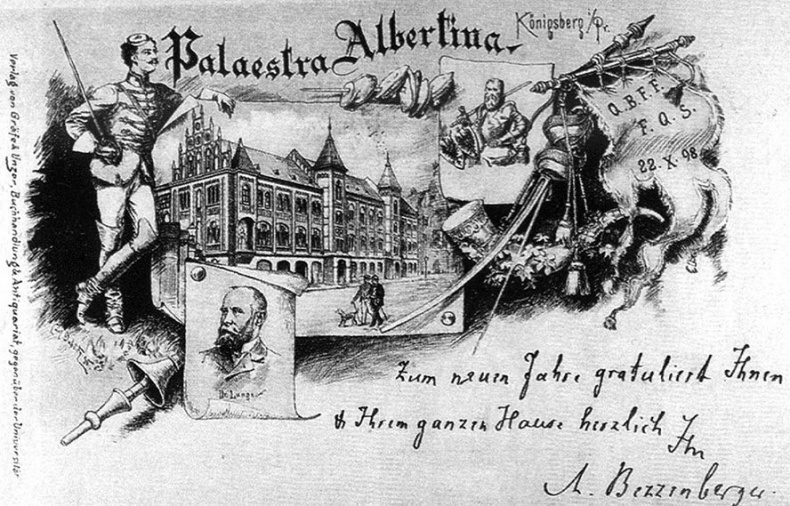 Palaestra Albertina.
Königsberg i/Pr.
Q. B. F. F.
F. Q. S.
22. X. 98
Verlag von Gräfe & Unger, Buchhandlung & Antiquariat, gegenüber der Universität
Dr. Lange
Zum neuen Jahre gratuliert Ihnen
& Ihrem ganzen Hause herzlich
Ihr
A. Bezzenberger.